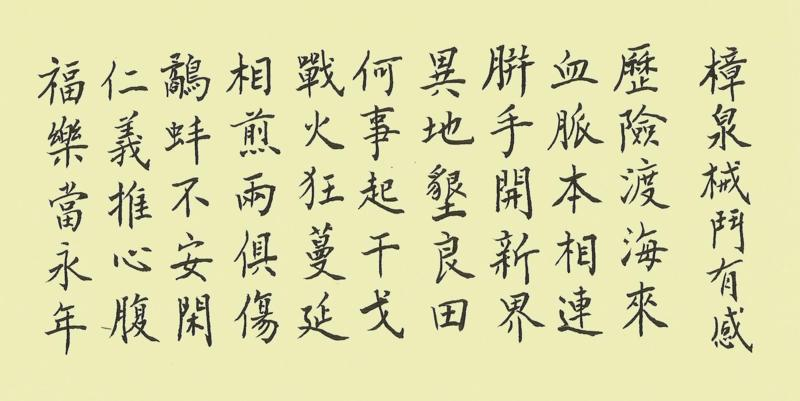 樟泉械鬥有感
歷險渡海來
血脈本相連
胼手開新界
異地墾良田
何事起干戈
戰火狂蔓延
相煎兩俱傷
鷸蚌不安閑
仁義推心腹
福樂當永年